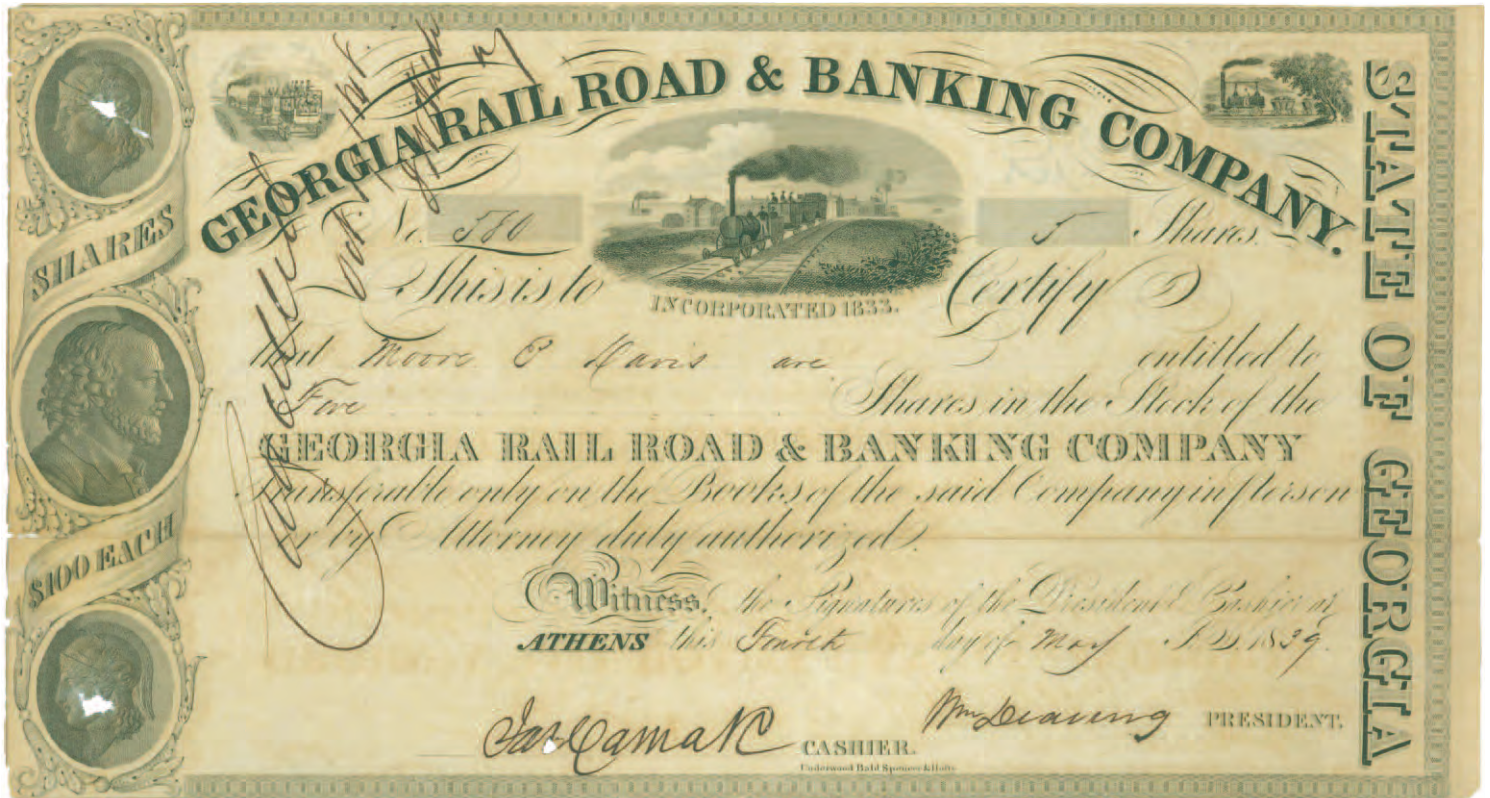 GEORGIA RAIL ROAD & BANKING COMPANY.
No. 580
5 Shares.
INCORPORATED 1833.
This is to Certify
that Moore & Davis are entitled to
Five Shares in the Stock of the
GEORGIA RAIL ROAD & BANKING COMPANY
transferable only on the Books of the said Company in person
or by Attorney duly authorized.
Witness, the Signatures of the President & Cashier at
ATHENS this Fourth day of May A.D. 1839.
Jas Camak CASHIER.
Wm Dearing PRESIDENT.
Underwood Bald Spencer & Hufty
SHARES
$100 EACH
STATE OF GEORGIA
Cancelled